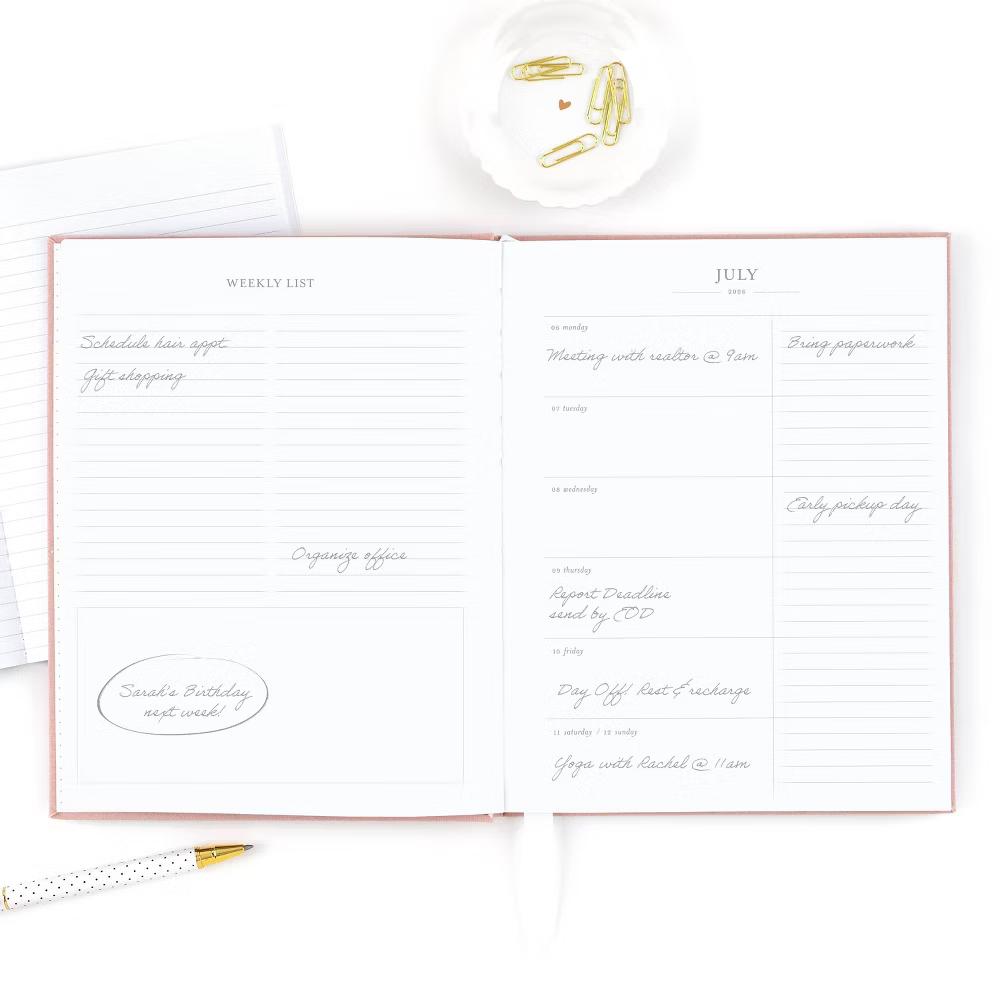 WEEKLY LIST
Schedule hair appt.
Gift shopping
Organize office
Sarah's Birthday
next week!
JULY
2026
06 monday
Meeting with realtor @ 9am
Bring paperwork
07 tuesday
08 wednesday
Early pickup day
09 thursday
Report Deadline
send by EOD
10 friday
Day Off! Rest & recharge
11 saturday / 12 sunday
Yoga with Rachel @ 11am